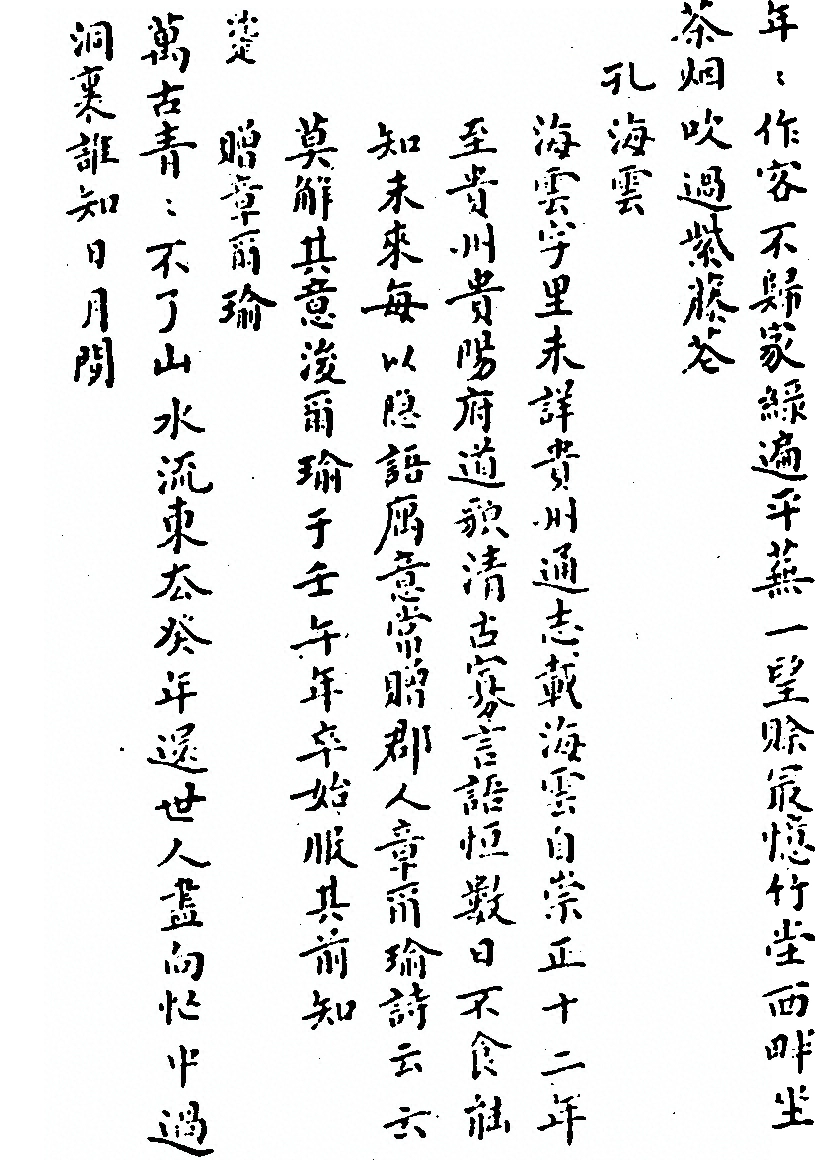 年〻作客不歸家綠遍平蕪一望賒最憶竹堂西畔坐
茶烟吹過紫藤花
孔海雲
海雲字里未詳貴州通志載海雲自崇正十二年
至貴州貴陽府道貌清古寡言語恒數日不食能
知未來每以隱語寓意常贈郡人章爾瑜詩云云
莫解其意後爾瑜于壬午年卒始服其前知
贈章爾瑜
萬古青〻不了山水流東去癸年還世人盡向忙中過
洞裏誰知日月閒